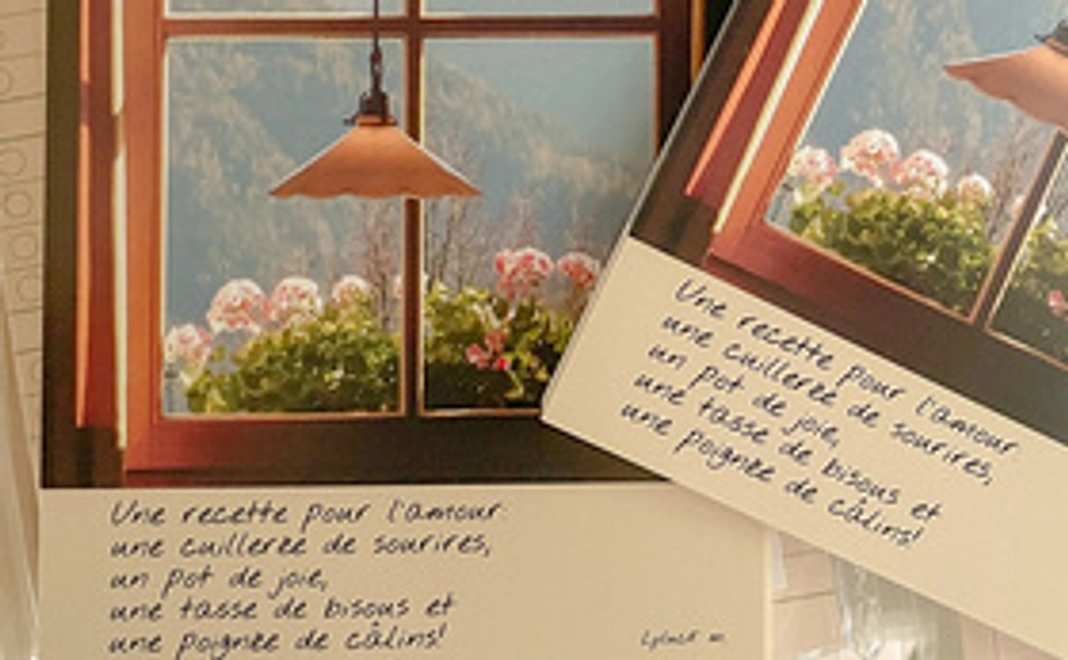 Une recette pour l'amour
une cuillerée de sourires,
un pot de joie,
une tasse de bisous et
une poignée de câlins!
Une recette pour l'amour
une cuillerée de sourires,
un pot de joie,
une tasse de bisous et
une poignée de câlins!